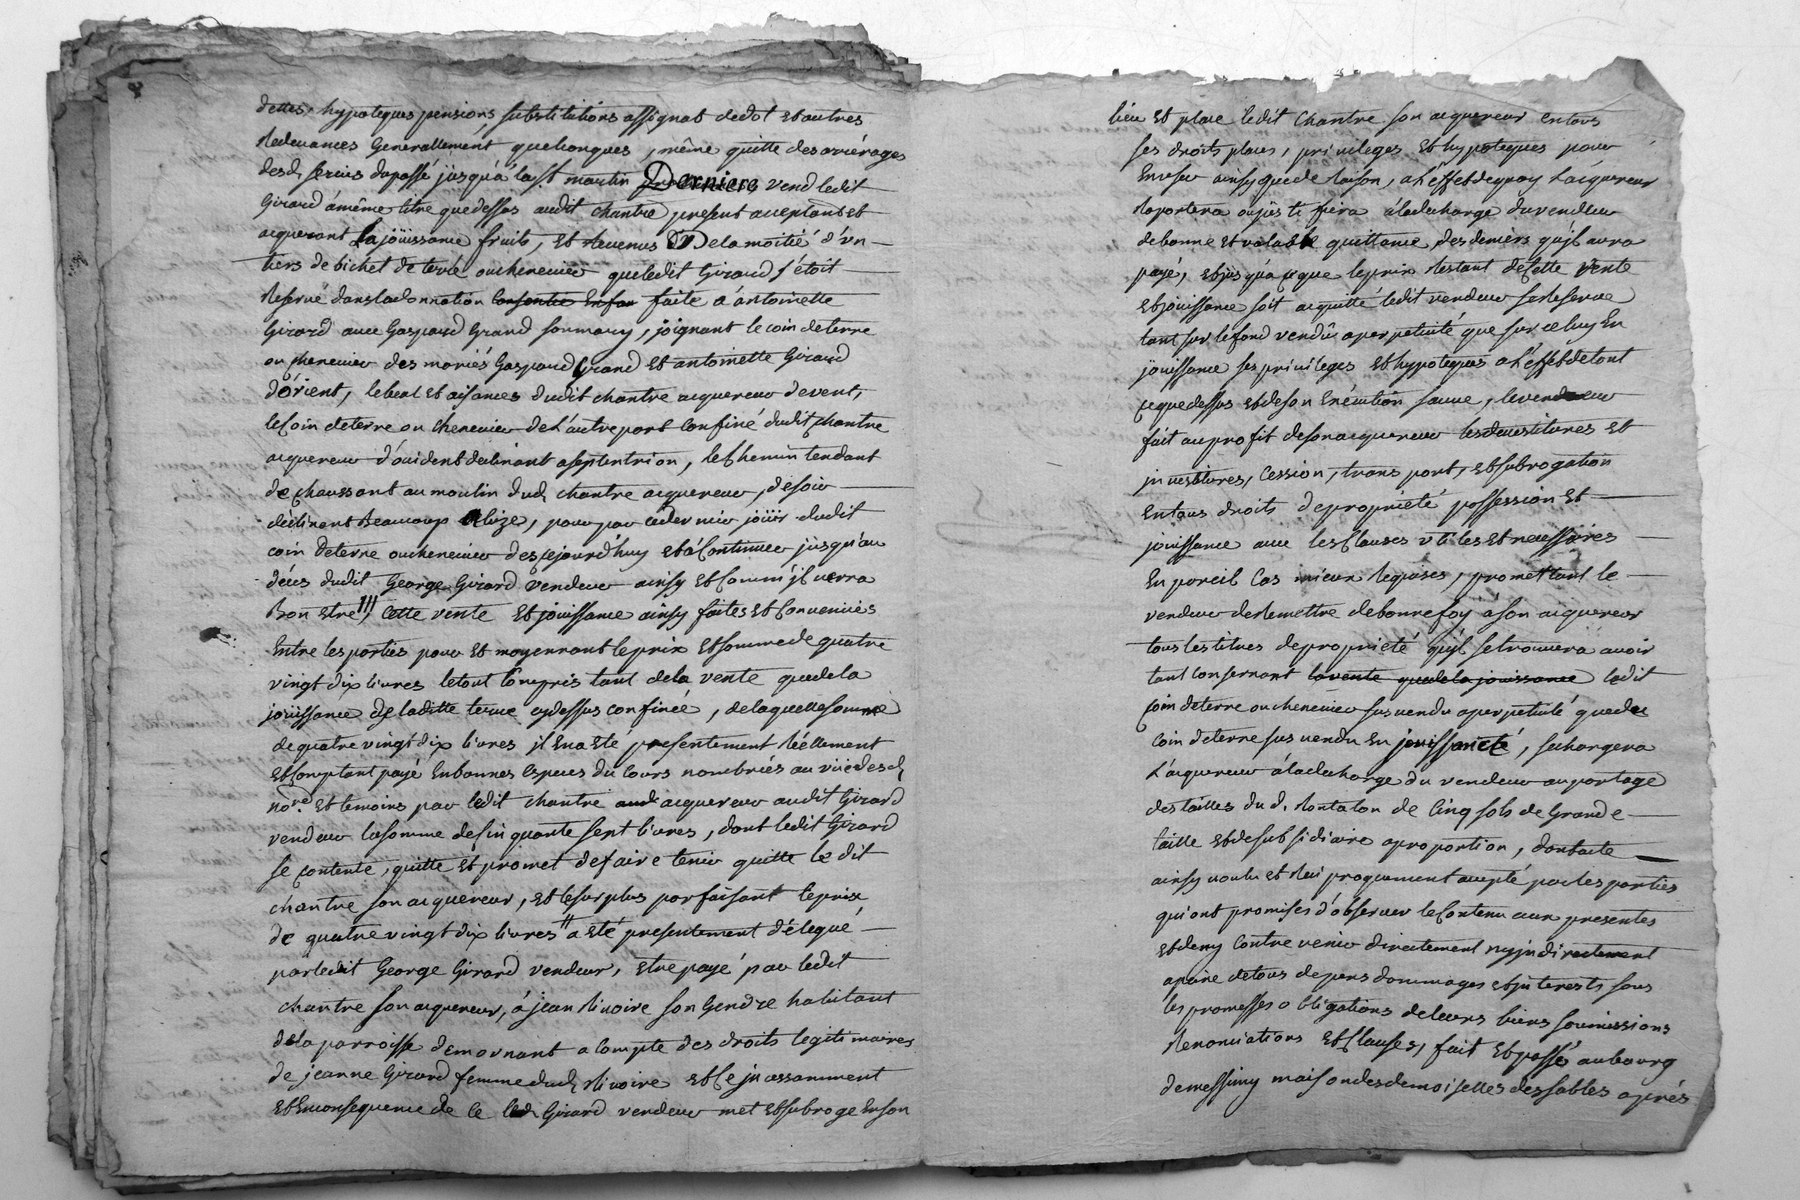 dettes, hypoteques pensions, substitutions assignat de dot et autres
Redevances Generallement quelconques, même quitte des arriérages
desd. servis du passé jusqu'à la st. martin Derniere vend ledit
Girard à même titre que dessus audit Chantre present acceptant et
acquerant la joüissance fruits, et Revenus De la moitié d'un
tiers de bichet de terre ou chenevier que ledit Girard s'étoit
Reservé dans la donnation faite a antoinette
Girard avec Gaspard Grand son mary, joignant le coin de terre
ou chenevier des mariés Gaspard Grand et antoinette Girard
d'orient, le beal et aisances dudit chantre acquereur de vent,
le Coin de terre ou chenevier de L'autre part Confiné dudit Chantre
acquereur d'occident declinant a septentrion, le Chemin tendant
de chaussant au moulin dud. chantre acquereur, de soir
déclinant Beaucoup a bize, pour par ce dernier joüir dudit
coin de terre ou chenevier des ce jourd'huy et à Continuer jusqu'au
déces dudit George Girard vendeur ainsy et Comm' jl verra
Bon estre /// Cette vente et joüissance ainsy faites et Convenües
Entre les parties pour et moyennant le prix et somme de quatre
vingt dix livres le tout Compris tant de la vente que de la
joüissance de laditte terre cy dessus confinée, de laquelle somme
de quatre vingt dix livres jl en a été presentement Réellement
et Comptant payé En bonnes especes du Cours nombrées au vüe desd.
nore. et temoins par ledit Chantre acquereur audit Girard
vendeur la somme de sinquante sept livres, dont ledit Girard
se contente, quitte et promet de faire tenir quitte le dit
chantre son acquereur, et le surplus parfaisant le prix
de quatre vingt dix livres a été presentement délegué
par ledit George Girard vendeur, etre payé par ledit
Chantre son acquereur, à jean Rivoire son Gendre habitant
de la parroisse de mornant a Compte des droits legitimaires
de jeanne Girard femme dud. Rivoire et Ce jncessamment
et En consequence de Ce led. Girard vendeur met et subroge En son
lieu et place ledit Chantre son acquereur en tous
ses droits places, privileges et hypoteques pour
En user ainsy que de Raison, a L'effet de quoy L'acquereur
Raportera ou justifiera à la decharge du vendeur
de bonne et valable quittance des deniers qu'jl aura
payé, et jusqu'a ce que le prix Restant de Cette Vente
et joüissance soit acquitté ledit vendeur se Reserve
tant sur le fond vendû a perpetuité que sur celuy En
joüissance ses privileges et hypoteques a L'effet de tout
ce que dessus et de son Execution sauve, le vendeur
fait au profit de son acquereur les devestitures et
jnvestitures, Cession, transport, et subrogation
En tous droits de propriété possession et
joüissance avec les Clauses utiles et necessaires
En pareil Cas mieux Requises, promettant le
vendeur de Remettre de bonne foy à son acquereur
tous les titres de propriété qu'jl se trouvera avoir
tant Consernant la vente que de la joüissance ledit
coin de terre ou chenevier sus vendu a perpetuité que de
Coin de terre sus vendu En joüissance, se chargera
L'acquereur à la decharge du vendeur au portage
des tailles du d. Rontalon de Cinq sols de Grande
taille et de subsidiaire a proportion, dont acte
ainsy voulu et Reciproquement accepté par les parties
qui ont promises d'observer le Contenu aux presentes
et de ny Contrevenir directement ny jndirectement
a peine de tous depens dommages et jnterests sous
les promesses obligations de leurs biens soumissions
Renonciations et Clauses, fait et passé au bourg
de messimy maison des demoiselles des sables aprés